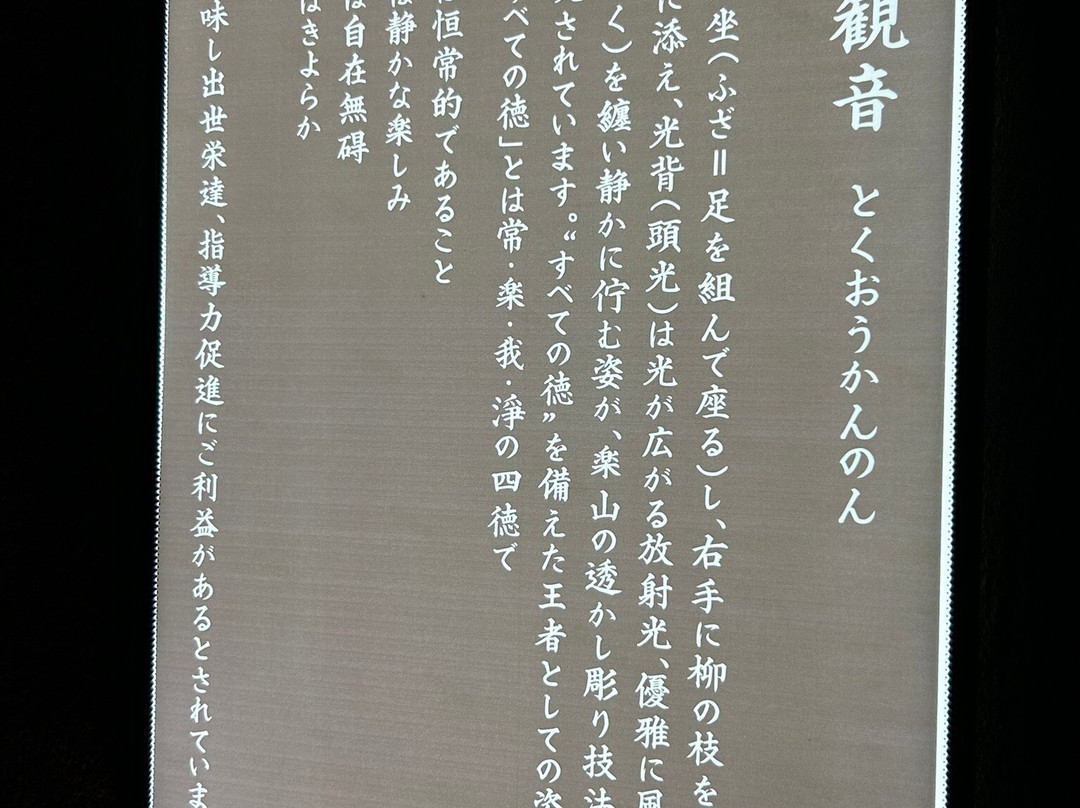 観音　とくおうかんのん
坐（ふざ＝足を組んで座る）し、右手に柳の枝を
に添え、光背（頭光）は光が広がる放射光、優雅に風
く）を纏い静かに佇む姿が、楽山の透かし彫り技法
されています。“すべての徳”を備えた王者としての姿
べての徳」とは常・楽・我・淨の四徳で
恒常的であること
は静かな楽しみ
は自在無碍
はきよらか
味し出世栄達、指導力促進にご利益があるとされていま